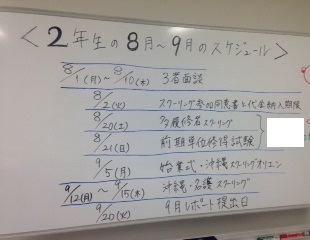 ＜2年生の8月～9月のスケジュール＞
8/1(月)～8/10(水) 3者面談
8/2(火) スクーリング参加同意書&代金納入期限
8/20(土) 多履修者スクーリング
8/21(日) 前期単位修得試験
9/5(月) 始業式・沖縄スクーリングオリエン
9/12(月)～9/15(木) 沖縄・名護スクーリング
9/20(火) 9月レポート提出日